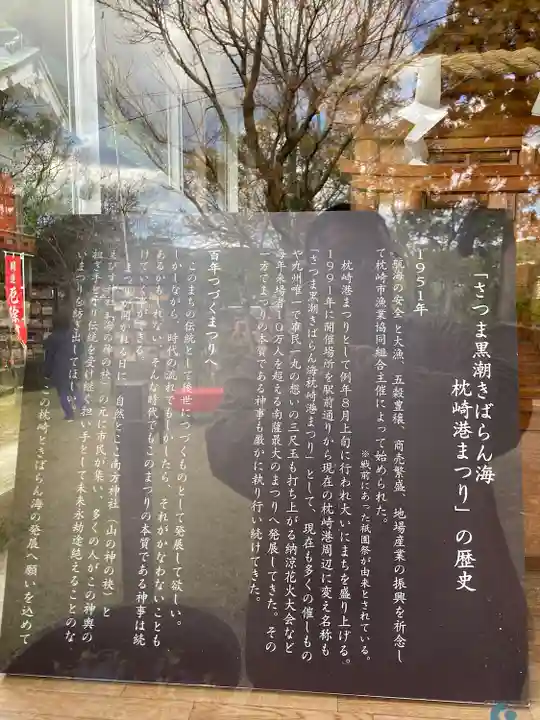 「さつま黒潮きばらん海
枕崎港まつり」の歴史
1951年
航海の安全と大漁、五穀豊穣、商売繁盛、地場産業の振興を祈念し
て枕崎市漁業協同組合主催によって始められた。
※戦前にあった祇園祭が由来とされている。
枕崎港まつりとして例年8月上旬に行われ大いにまちを盛り上げる。
1991年に開催場所を駅前通りから現在の枕崎港周辺に変え名称も
「さつま黒潮きばらん海枕崎港まつり」として、現在も多くの催しもの
や九州唯一で市民一丸の想いの三尺玉も打ち上がる納涼花火大会など
毎年来場者10万人を超える南薩最大のまつりへ発展してきた。その
一方でまつりの本質である神事も厳かに執り行い続けてきた。
百年つづくまつりへ
このまちの伝統として後世につづくものとして発展して欲しい。
しかしながら、時代の流れでもしかしたら、それがかなわないことも
あるかもしれない。そんな時代でもこのまつりの本質である神事は続
けていく事ができる。
まつりが開かれる日に、自然とここ南方神社（山の神の袂）と
えびす神社（海の神の袂）の元に市民が集い、多くの人がこの神輿の
担ぎ手となり伝統を受け継ぐ担い手として未来永劫途絶えることのな
いまつりを紡ぎ出してほしい。
この枕崎ときばらん海の発展へ願いを込めて